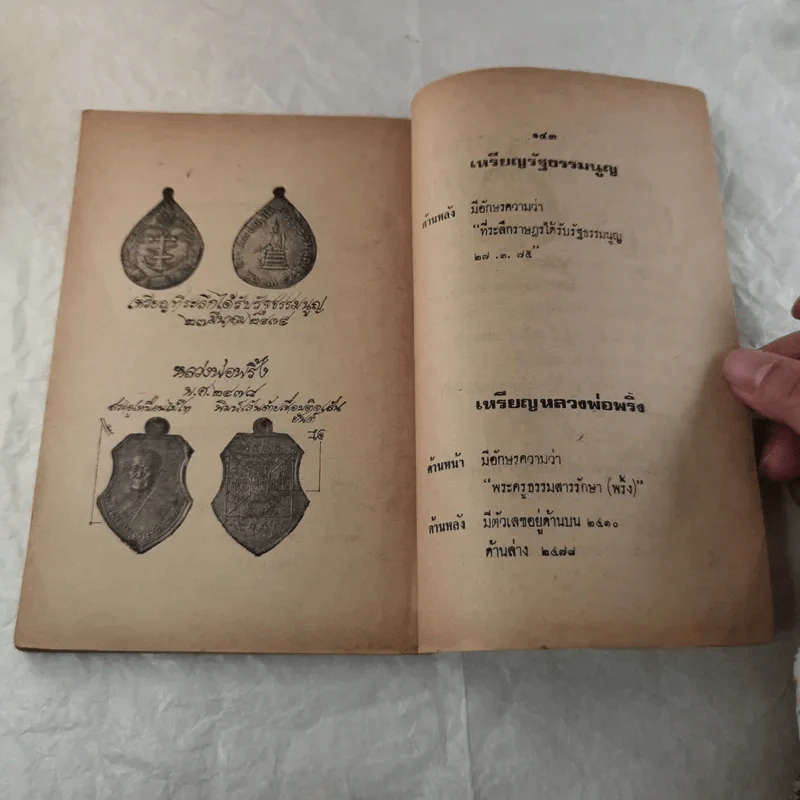 เหรียญที่ระลึกได้รับรัฐธรรมนูญ
๒๗ มีนาคม ๒๔๗๕
หลวงพ่อพริ้ง
พ.ศ. ๒๔๗๘
พิมพ์เส้นด้าย
ยันต์
๑๔๓
เหรียญรัฐธรรมนูญ
ด้านหลัง มีอักษรความว่า
"ที่ระลึกราษฎรได้รับรัฐธรรมนูญ
๒๗.๓.๗๕"
เหรียญหลวงพ่อพริ้ง
ด้านหน้า มีอักษรความว่า
"พระครูธรรมสารรักษา (พริ้ง)"
ด้านหลัง มีตัวเลขอยู่ด้านบน ๒๔๑๐
ด้านล่าง ๒๔๗๘